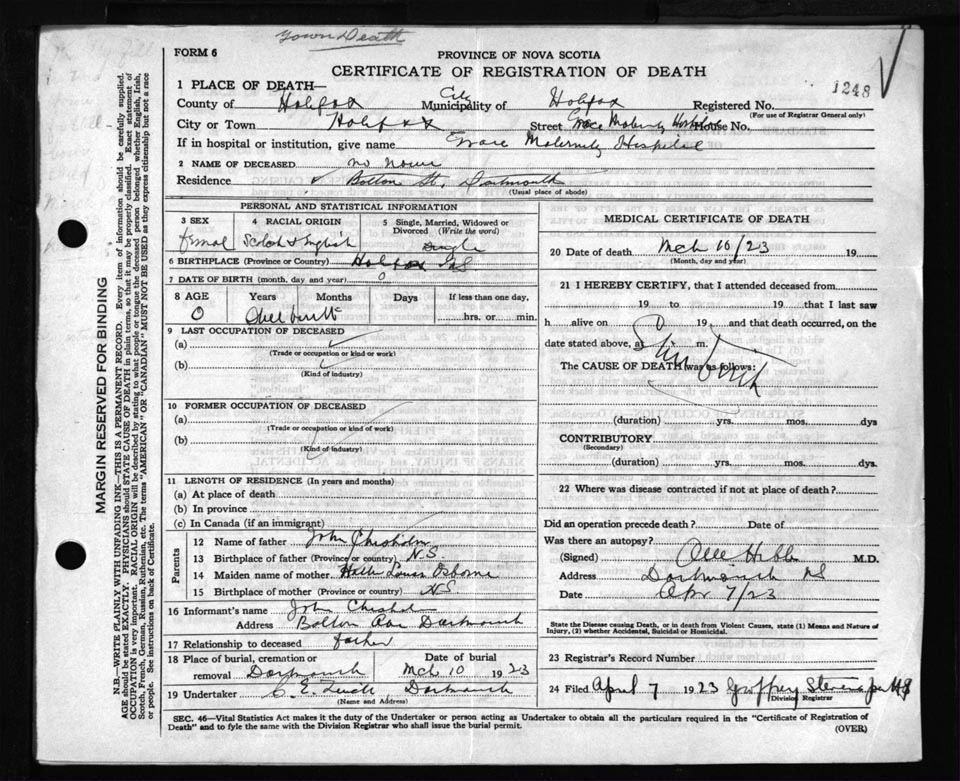 Town Death
FORM 6
PROVINCE OF NOVA SCOTIA
CERTIFICATE OF REGISTRATION OF DEATH
1248
1 PLACE OF DEATH—
County of Halifax City Municipality of Halifax Registered No.
(For use of Registrar General only)
City or Town Halifax Street Grace Maternity Hospital House No.
If in hospital or institution, give name Grace Maternity Hospital
2 NAME OF DECEASED no name
Residence Bolton St. Dartmouth
(Usual place of abode)
PERSONAL AND STATISTICAL INFORMATION
3 SEX 4 RACIAL ORIGIN 5 Single, Married, Widowed or Divorced (Write the word)
Femal Scotch & English Single
6 BIRTHPLACE (Province or Country) Halifax NS
7 DATE OF BIRTH (month, day and year) 0
8 AGE Years Months Days If less than one day,
0 hrs. or min.
9 LAST OCCUPATION OF DECEASED
(a)
(Trade or occupation or kind or work)
(b)
(Kind of industry)
10 FORMER OCCUPATION OF DECEASED
(a)
(Trade or occupation or kind of work)
(b)
(Kind of industry)
11 LENGTH OF RESIDENCE (In years and months)
(a) At place of death
(b) In province
(c) In Canada (if an immigrant)
Parents
12 Name of father John Chisholm
13 Birthplace of father (Province or country) N.S.
14 Maiden name of mother Osborne
15 Birthplace of mother (Province or country) NS
16 Informant's name John Chisholm
Address Bolton Ave Dartmouth
17 Relationship to deceased father
18 Place of burial, cremation or removal Dartmouth Date of burial Mch 10 1923
19 Undertaker C. E. Dartmouth
(Name and Address)
MEDICAL CERTIFICATE OF DEATH
20 Date of death Mch 10/23 19
(Month, day and year)
21 I HEREBY CERTIFY, that I attended deceased from
19 to 19 that I last saw
h alive on 0 19 , and that death occurred, on the
date stated above, at m.
The CAUSE OF DEATH was as follows:
Still birth
(duration) yrs. mos. dys
CONTRIBUTORY
(Secondary)
(duration) yrs. mos. dys.
22 Where was disease contracted if not at place of death?
Did an operation precede death? Date of
Was there an autopsy?
(Signed) Hibbs M.D.
Address Dartmouth NS
Date Apr 7/23
State the Disease causing Death, or in death from Violent Causes, state (1) Means and Nature of
Injury, (2) whether Accidental, Suicidal or Homicidal.
23 Registrar's Record Number
24 Filed April 7 1923 Geoffrey Stevens
Division Registrar
SEC. 46—Vital Statistics Act makes it the duty of the Undertaker or person acting as Undertaker to obtain all the particulars required in the "Certificate of Registration of
Death" and to fyle the same with the Division Registrar who shall issue the burial permit.
(OVER)
MARGIN RESERVED FOR BINDING
N.B.—WRITE PLAINLY WITH UNFADING INK—THIS IS A PERMANENT RECORD. Every item of information should be carefully supplied.
AGE should be stated EXACTLY. PHYSICIANS should STATE CAUSE OF DEATH in plain terms, so that it may be properly classified. Exact statement of
OCCUPATION is very important. RACIAL ORIGIN will be described by stating to what people or tongue the deceased person belonged whether English, Irish,
Scotch, French, German, Russian, Ruthenian, etc. The terms "AMERICAN" OR "CANADIAN" MUST NOT BE USED as they express citizenship but not a race
or people. See instructions on back of Certificate.